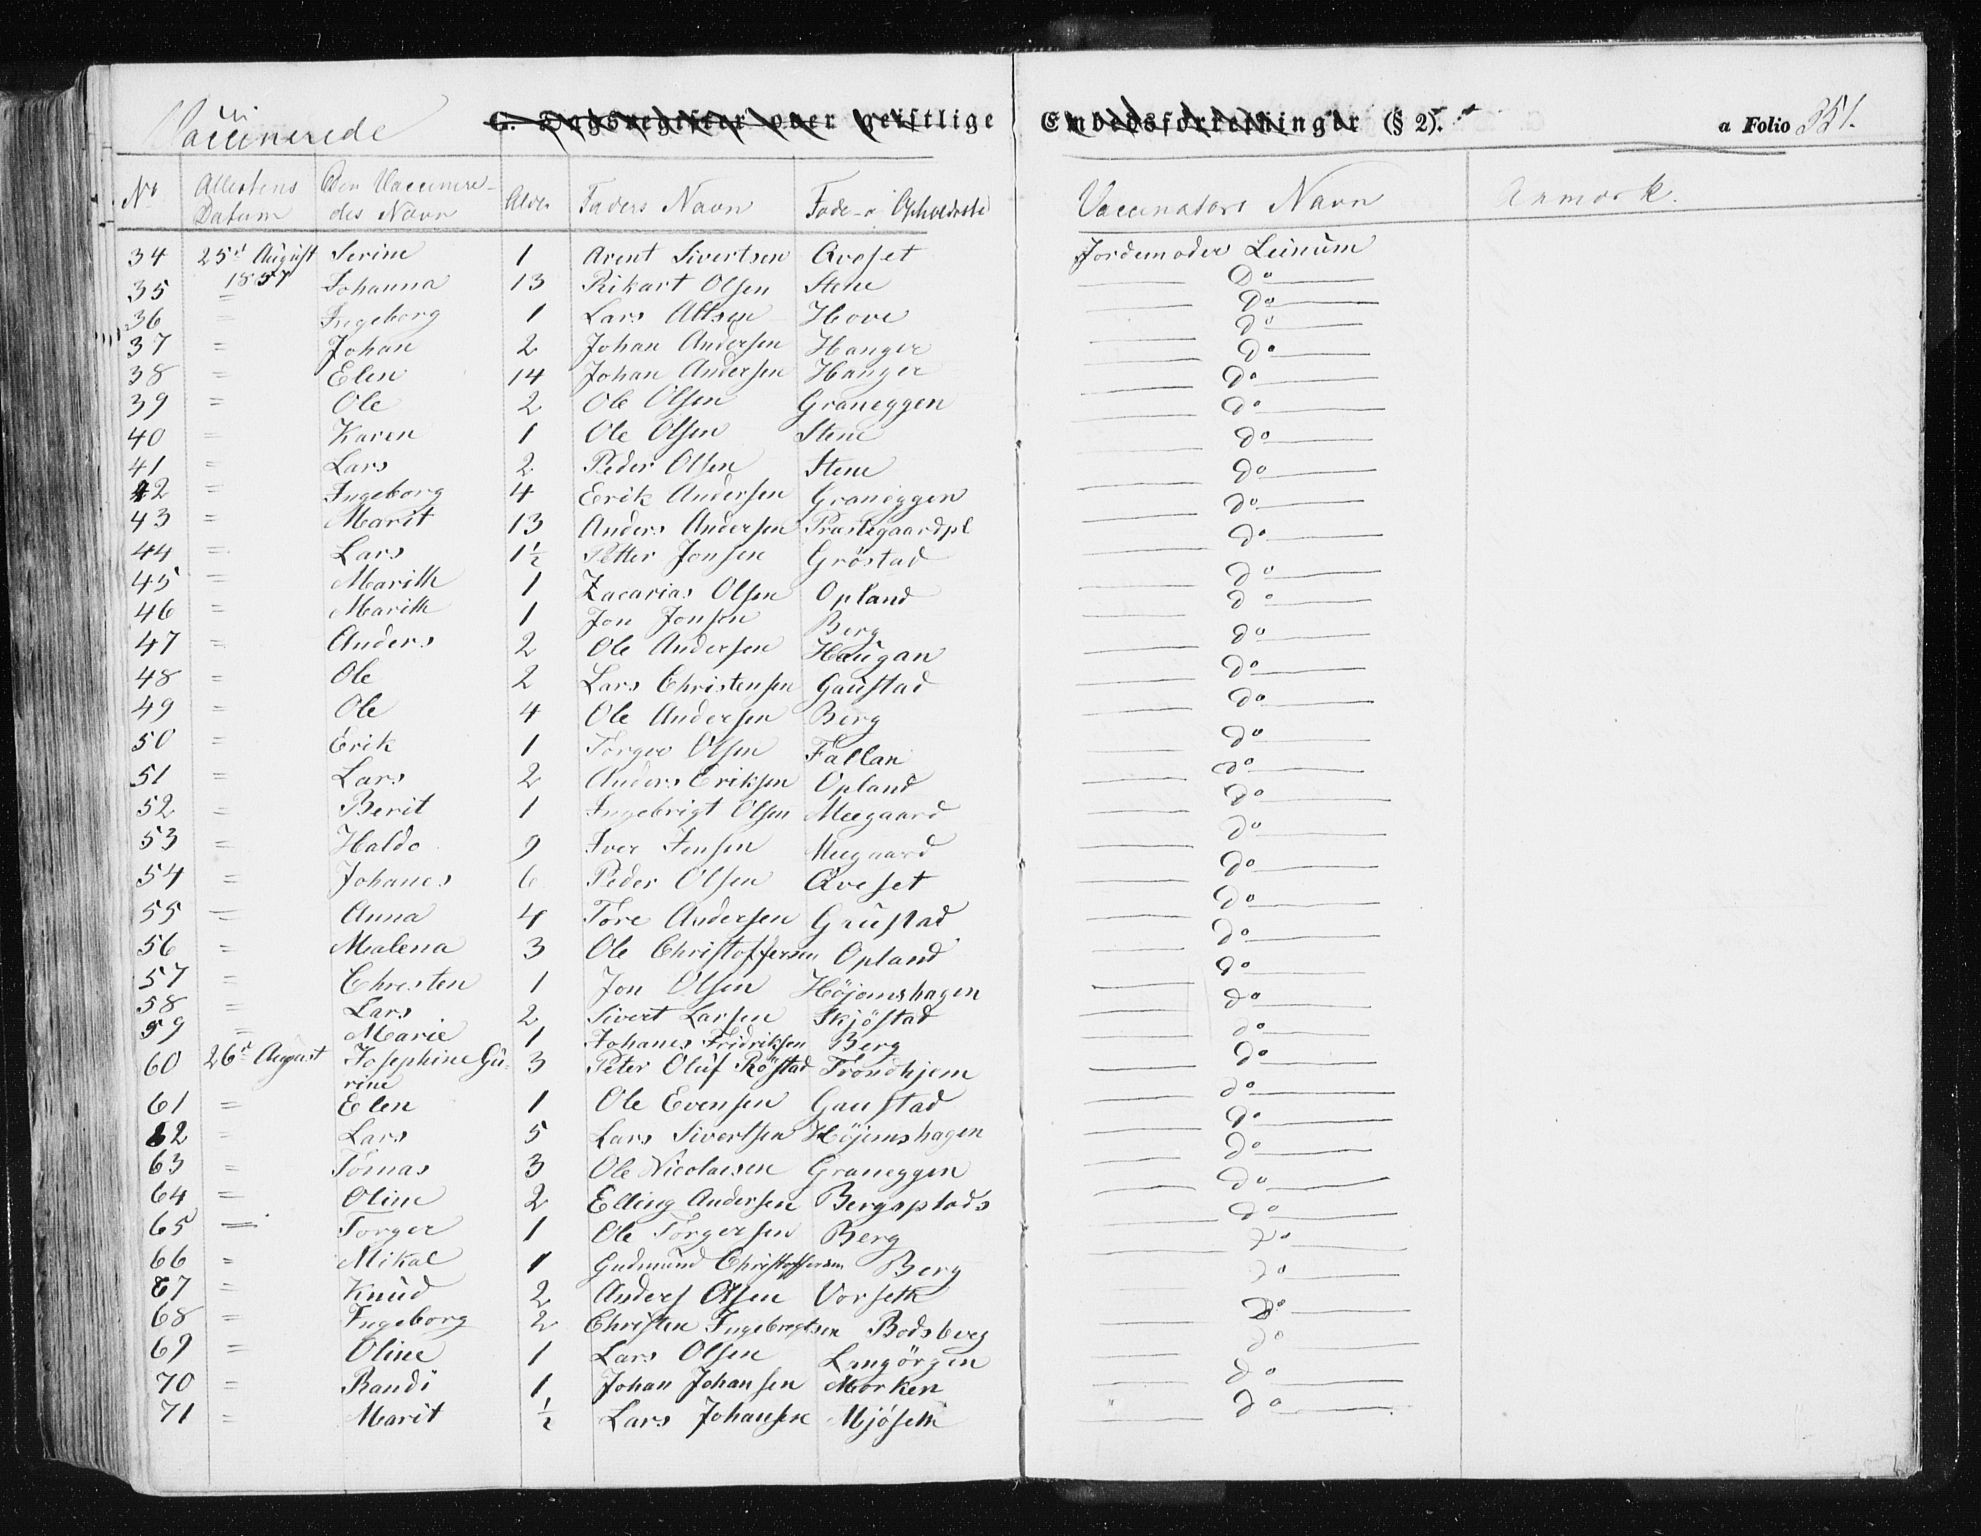 Vaccinerede G. Dagsregister over geistlige Embedsforretninger (§ 2). a Folio 351.
No Attestens Datum Den Vaccinere-des Navn Alder Faders Navn Føde- o. Opholdssted Vaccinators Navn Anmærk.
34 25de August 1857 Serine 1 Arent Sivertsen Qveset Jordemoder Leinum
35 = Johanna 13 Rikart Olsen Stene Do
36 = Ingeborg 1 Lars Hove Do
37 = Johan 2 Johan Andersen Hanger do
38 = Elen 14 Johan Andersen Hanger do
39 = Ole 2 Ole Olsen Graneggen do
40 = Karen 1 Ole Olsen Stene do
41 = Lars 2 Peder Olsen Stene do
42 = Ingeborg 4 Eerik Andersen Graneggen do
43 = Marit 13 Anders Andersen Præstegaardpl do
44 = Lars 1½ Petter Jonsen Gröstad do
45 = Marith 1 Zacarias Olsen Opland do
46 = Marith 1 Jon Jonsen Berg do
47 = Anders 2 Ole Andersen Haugan do
48 = Ole 2 Lars Christensen Gaustad do
49 = Ole 4 Ole Andersen Berg do
50 = Erik 1 Torger Olsen Fallan do
51 = Lars 2 Anders Eriksen Opland do
52 = Berit 1 Ingebrigt Olsen Meegaard do
53 = Haldo 9 Iver Jensen Meegaard do
54 = Johanes 6 Peder Olsen Qveset do
55 = Anna 4 Tore Andersen Grustad do
56 = Malena 3 Ole Christoffersen Opland do
57 = Christen 1 Jon Olsen Höjemshagen do
58 = Lars 2 Sivert Larsen Skjöstad do
59 = Marie 1 Johanes Fridriksen Berg do
60 26de August Josephine Gu-rine 3 Peter Oluf Röstad Trondhjem do
61 = Elen 1 Ole Evensen Gaustad do
62 = Lars 5 Lars Sivertsen Höjemshagen do
63 = Tomas 3 Ole Nicolaesen Graneggen do
64 = Oline 2 Elling Andersen Bergsplads do
65 = Torger 1 Ole Torgersen Berg do
66 = Mikal 1 Gudmund Christoffersen Berg do
67 = Knud 2 Anders Olsen Vorseth do
68 = Ingeborg 2 Christen Ingebregtsen Bodsberg do
69 = Oline 1 Lars Olsen Langörgen do
70 = Randi 1 Johan Johansen Morken do
71 = Marit ½ Lars Johansen Mjöseth " do